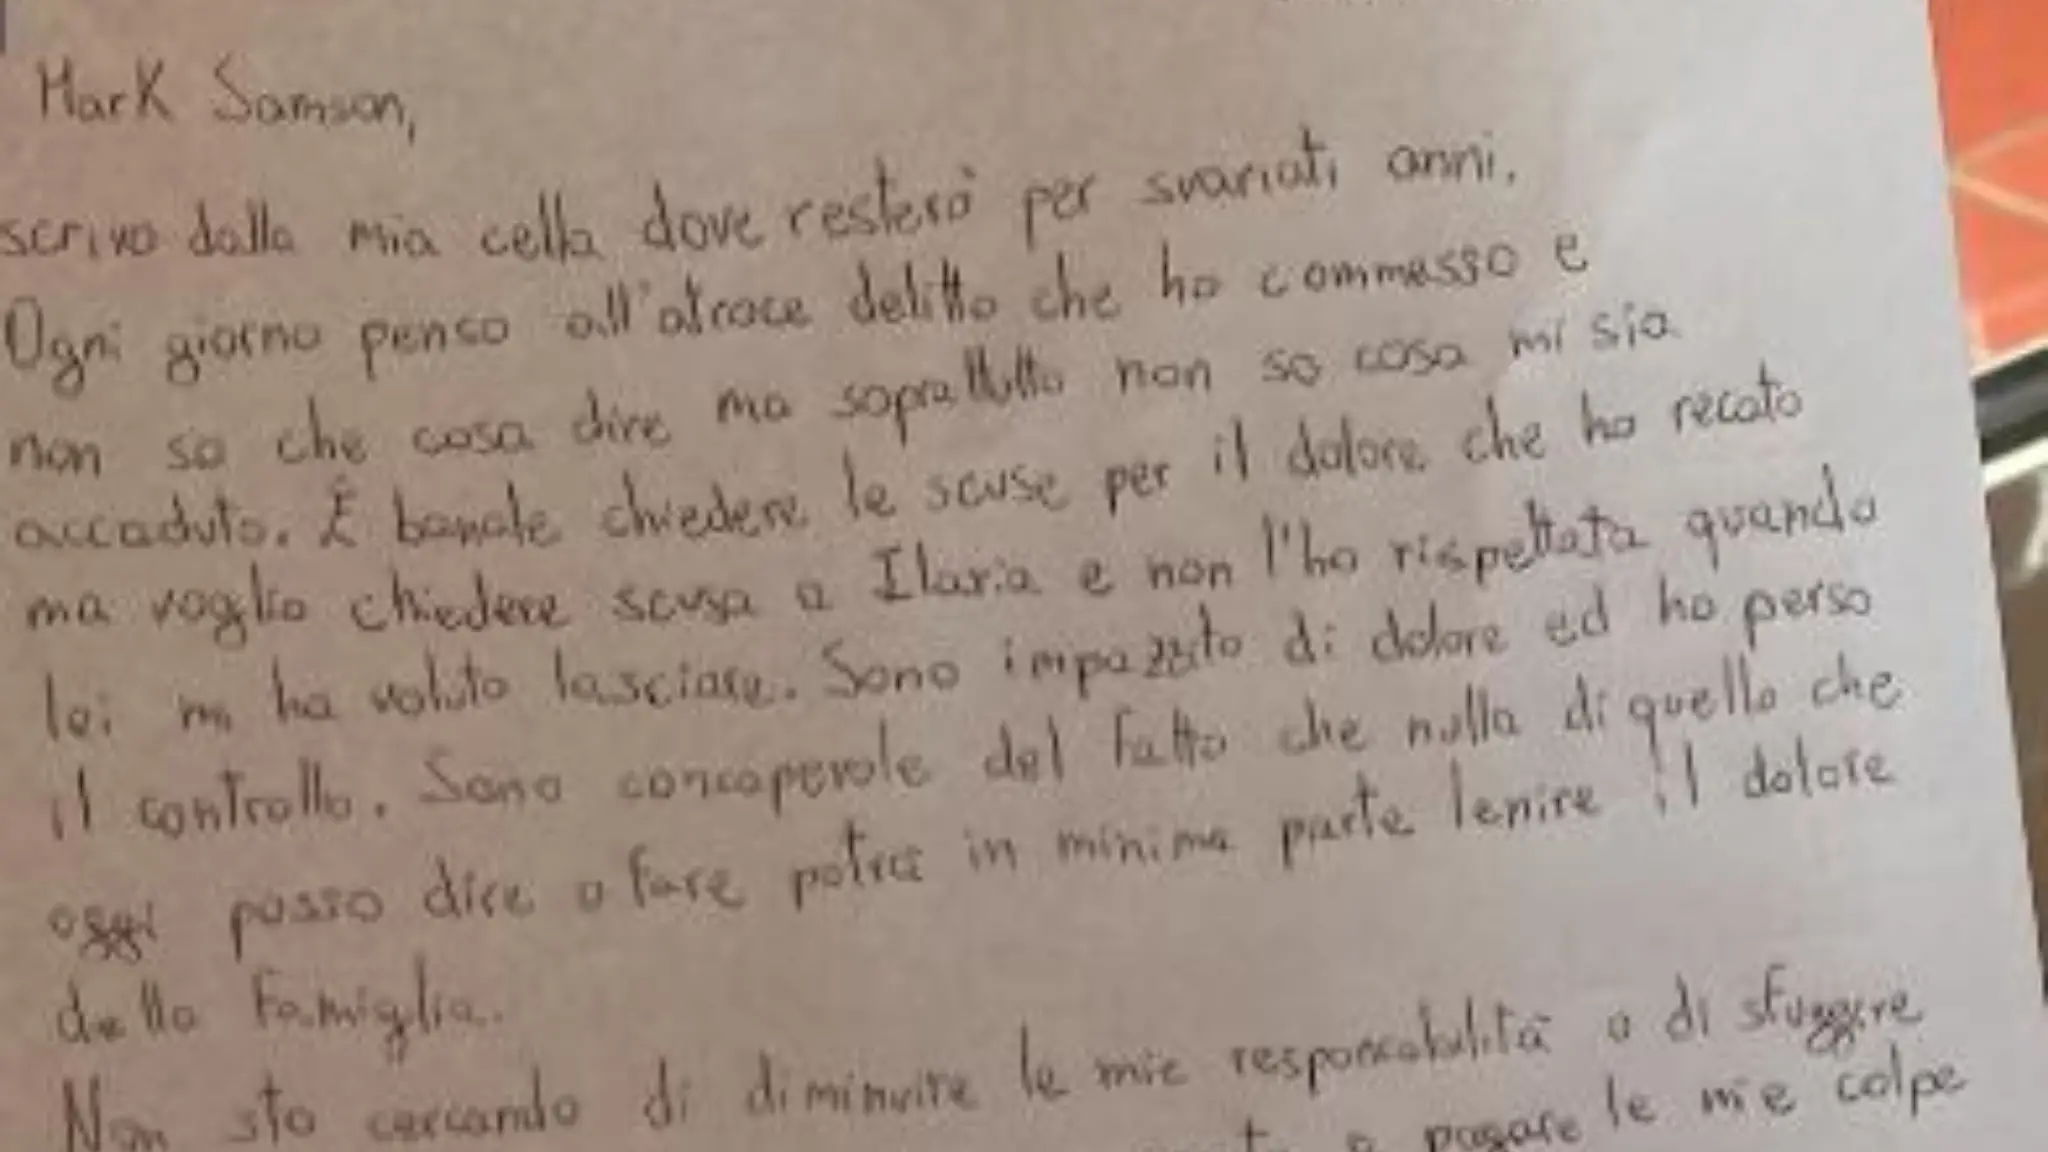 Mark Samson,
scrivo dalla mia cella dove resterò per svariati anni.
Ogni giorno penso all'atroce delitto che ho commesso e
non so che cosa dire ma soprattutto non so cosa mi sia
accaduto. È banale chiedere le scuse per il dolore che ho recato
ma voglio chiedere scusa a Ilaria e non l'ho rispettata quando
lei mi ha voluto lasciare. Sono impazzito di dolore ed ho perso
il controllo. Sono concapevole del fatto che nulla di quello che
oggi posso dire o fare potrà in minima parte lenire il dolore
della famiglia.
Non sto cercando di diminuire le mie responsabilità o di sfuggire
a pagare le mie colpe